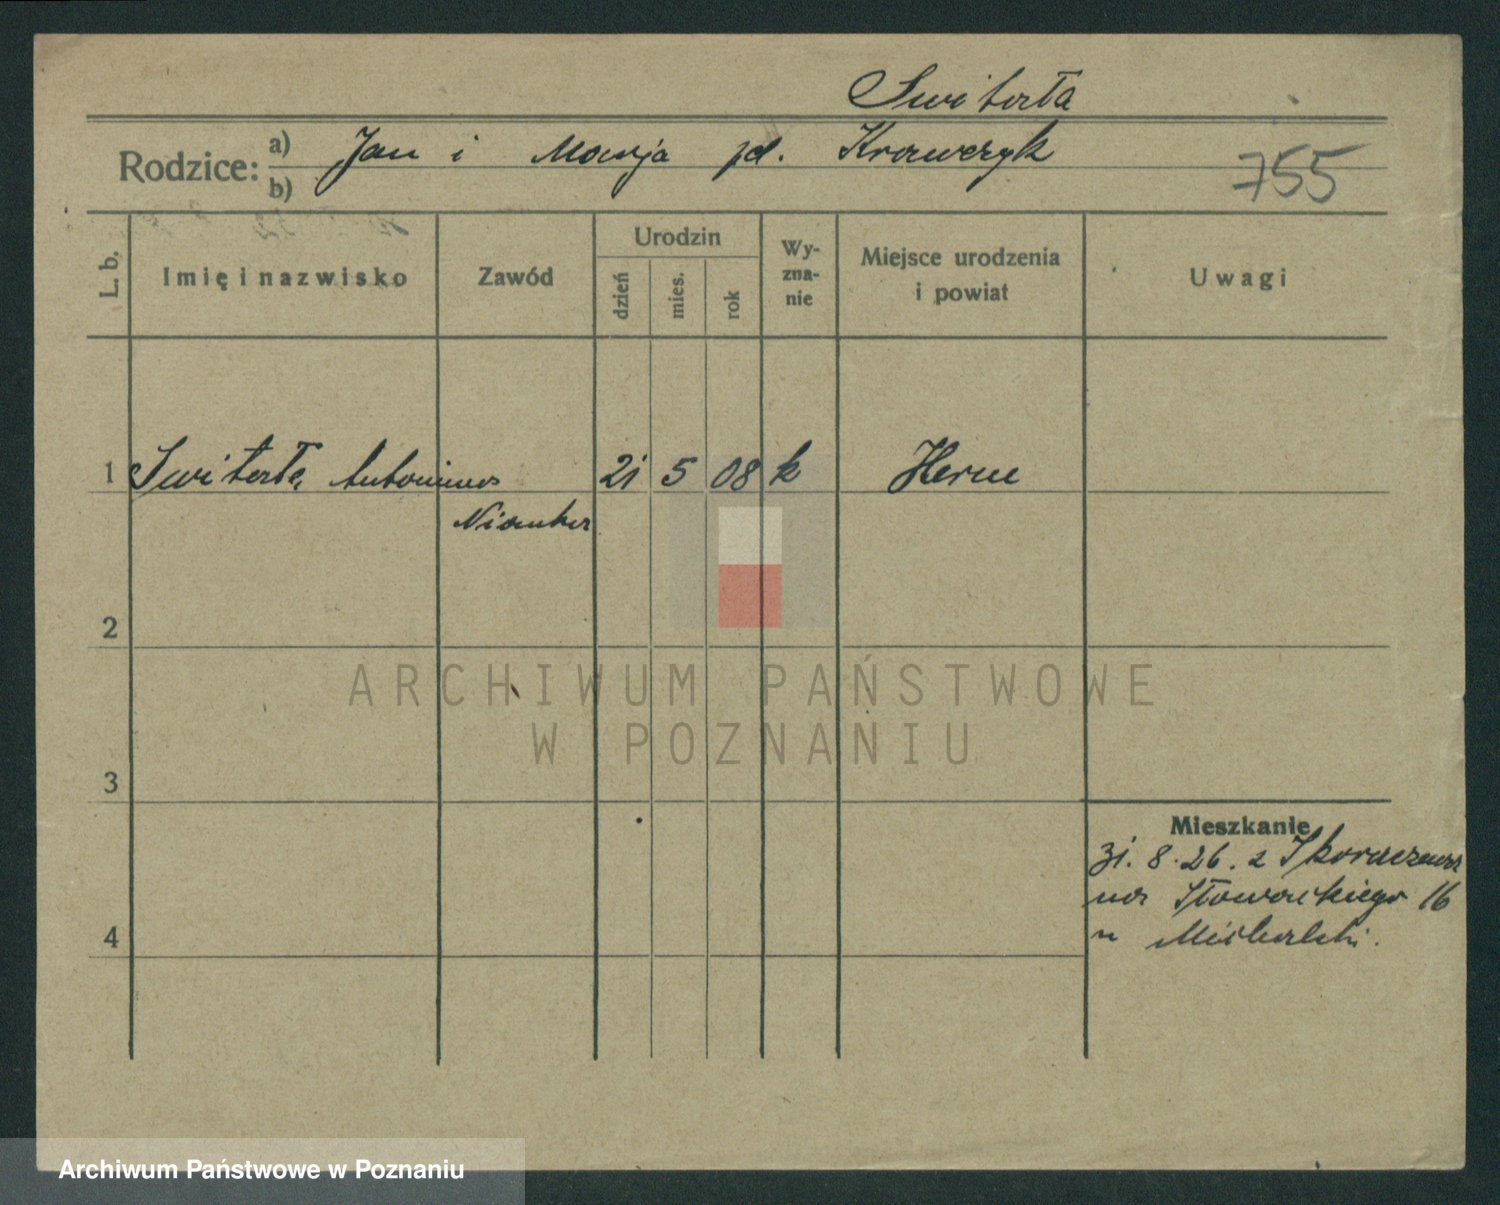 Switała
Rodzice: a) Jan i Marja zd. Krawczyk
b)
755
L. b.
Imię i nazwisko
Zawód
Urodzin
dzień
mies.
rok
Wy-
zna-
nie
Miejsce urodzenia
i powiat
Uwagi
1 Switała Antonina 21 5 08 k Herne
Nianka
2
3
4
Mieszkanie
31. 8. 26. z
na Słowackiego 16
u
ARCHIWUM PAŃSTWOWE
W POZNANIU
Archiwum Państwowe w Poznaniu